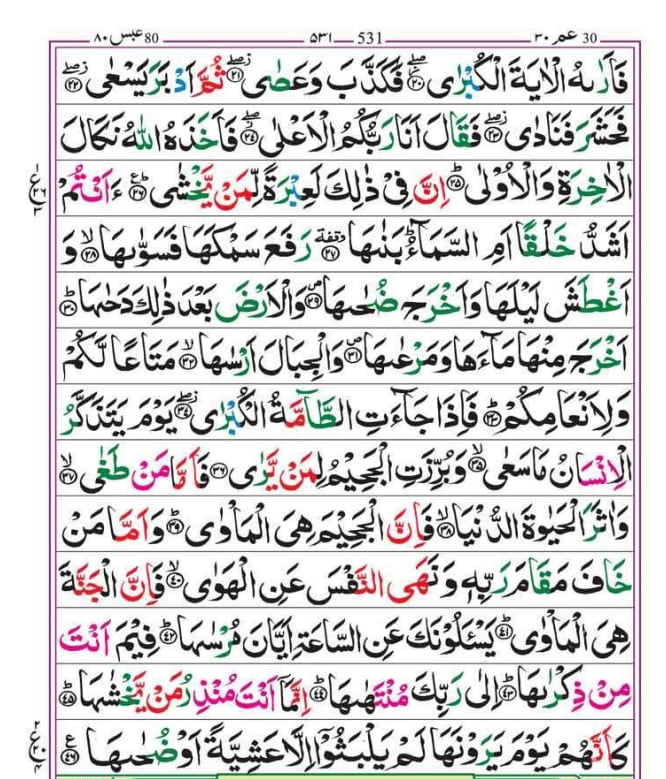 80 عبس ٨٠ 531 ٥٣١ 30 عم ٣٠
فَاَرٰىهُ الْاٰيَةَ الْكُبْرٰى ۖ﴿۲۰﴾ فَكَذَّبَ وَعَصٰى ۖ﴿۲۱﴾ ثُمَّ اَدْبَرَ يَسْعٰى ۖ﴿۲۲﴾
فَحَشَرَ فَنَادٰى ۖ﴿۲۳﴾ فَقَالَ اَنَا رَبُّكُمُ الْاَعْلٰى ۖ﴿۲۴﴾ فَاَخَذَهُ اللّٰهُ نَكَالَ
الْاٰخِرَةِ وَالْاُوْلٰى ؕ﴿۲۵﴾ اِنَّ فِىْ ذٰلِكَ لَعِبْرَةً لِّمَنْ يَّخْشٰى ؕ﴿۲۶﴾ ءَاَنْتُمْ
اَشَدُّ خَلْقًا اَمِ السَّمَآءُ ؕ بَنٰىهَا ﴿۲۷﴾ رَفَعَ سَمْكَهَا فَسَوّٰىهَا ۙ﴿۲۸﴾ وَ
اَغْطَشَ لَيْلَهَا وَاَخْرَجَ ضُحٰىهَا ۪﴿۲۹﴾ وَالْاَرْضَ بَعْدَ ذٰلِكَ دَحٰىهَا ؕ﴿۳۰﴾
اَخْرَجَ مِنْهَا مَآءَهَا وَمَرْعٰىهَا ۪﴿۳۱﴾ وَالْجِبَالَ اَرْسٰىهَا ۙ﴿۳۲﴾ مَتَاعًا لَّكُمْ
وَلِاَنْعَامِكُمْ ؕ﴿۳۳﴾ فَاِذَا جَآءَتِ الطَّآمَّةُ الْكُبْرٰى ۖ﴿۳۴﴾ يَوْمَ يَتَذَكَّرُ
الْاِنْسَانُ مَا سَعٰى ۙ﴿۳۵﴾ وَبُرِّزَتِ الْجَحِيْمُ لِمَنْ يَّرٰى ﴿۳۶﴾ فَاَمَّا مَنْ طَغٰى ۙ﴿۳۷﴾
وَاٰثَرَ الْحَيٰوةَ الدُّنْيَا ۙ﴿۳۸﴾ فَاِنَّ الْجَحِيْمَ هِىَ الْمَاْوٰى ؕ﴿۳۹﴾ وَاَمَّا مَنْ
خَافَ مَقَامَ رَبِّهٖ وَنَهَى النَّفْسَ عَنِ الْهَوٰى ۙ﴿۴۰﴾ فَاِنَّ الْجَنَّةَ
هِىَ الْمَاْوٰى ؕ﴿۴۱﴾ يَسْئَلُوْنَكَ عَنِ السَّاعَةِ اَيَّانَ مُرْسٰىهَا ؕ﴿۴۲﴾ فِيْمَ اَنْتَ
مِنْ ذِكْرٰىهَا ؕ﴿۴۳﴾ اِلٰى رَبِّكَ مُنْتَهٰىهَا ؕ﴿۴۴﴾ اِنَّمَآ اَنْتَ مُنْذِرُ مَنْ يَّخْشٰىهَا ؕ﴿۴۵﴾
كَاَنَّهُمْ يَوْمَ يَرَوْنَهَا لَمْ يَلْبَثُوْۤا اِلَّا عَشِيَّةً اَوْ ضُحٰىهَا ﴿۴۶﴾